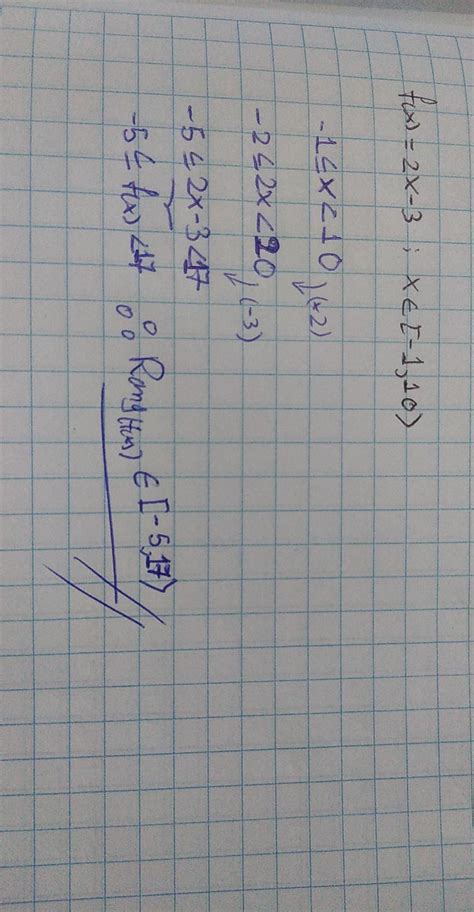 f(x) = 2x - 3 ; x ∈ [-1, 10⟩
-1 ≤ x < 10 ↓ (×2)
-2 ≤ 2x < 20 ↓ (-3)
-5 ≤ 2x - 3 < 17
-5 ≤ f(x) < 17 ∴ Rang(f(x)) ∈ [-5, 17⟩